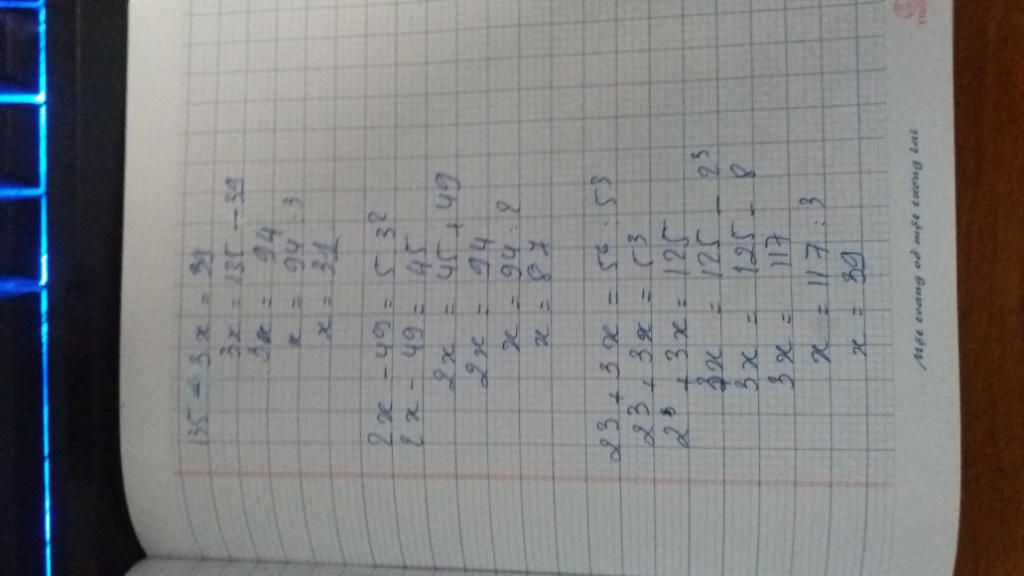 135 - 3x = 39
3x = 135 - 39
3x = 94
x = 94 : 3
x = 31
2x - 49 = 5 3²
2x - 49 = 45
2x = 45 + 49
2x = 94
x = 94 : 2
x = 87
23 + 3x = 5⁶ : 5³
23 + 3x = 5³
2³ + 3x = 125
3x = 125 - 2³
3x = 125 - 8
3x = 117
x = 117 : 3
x = 39